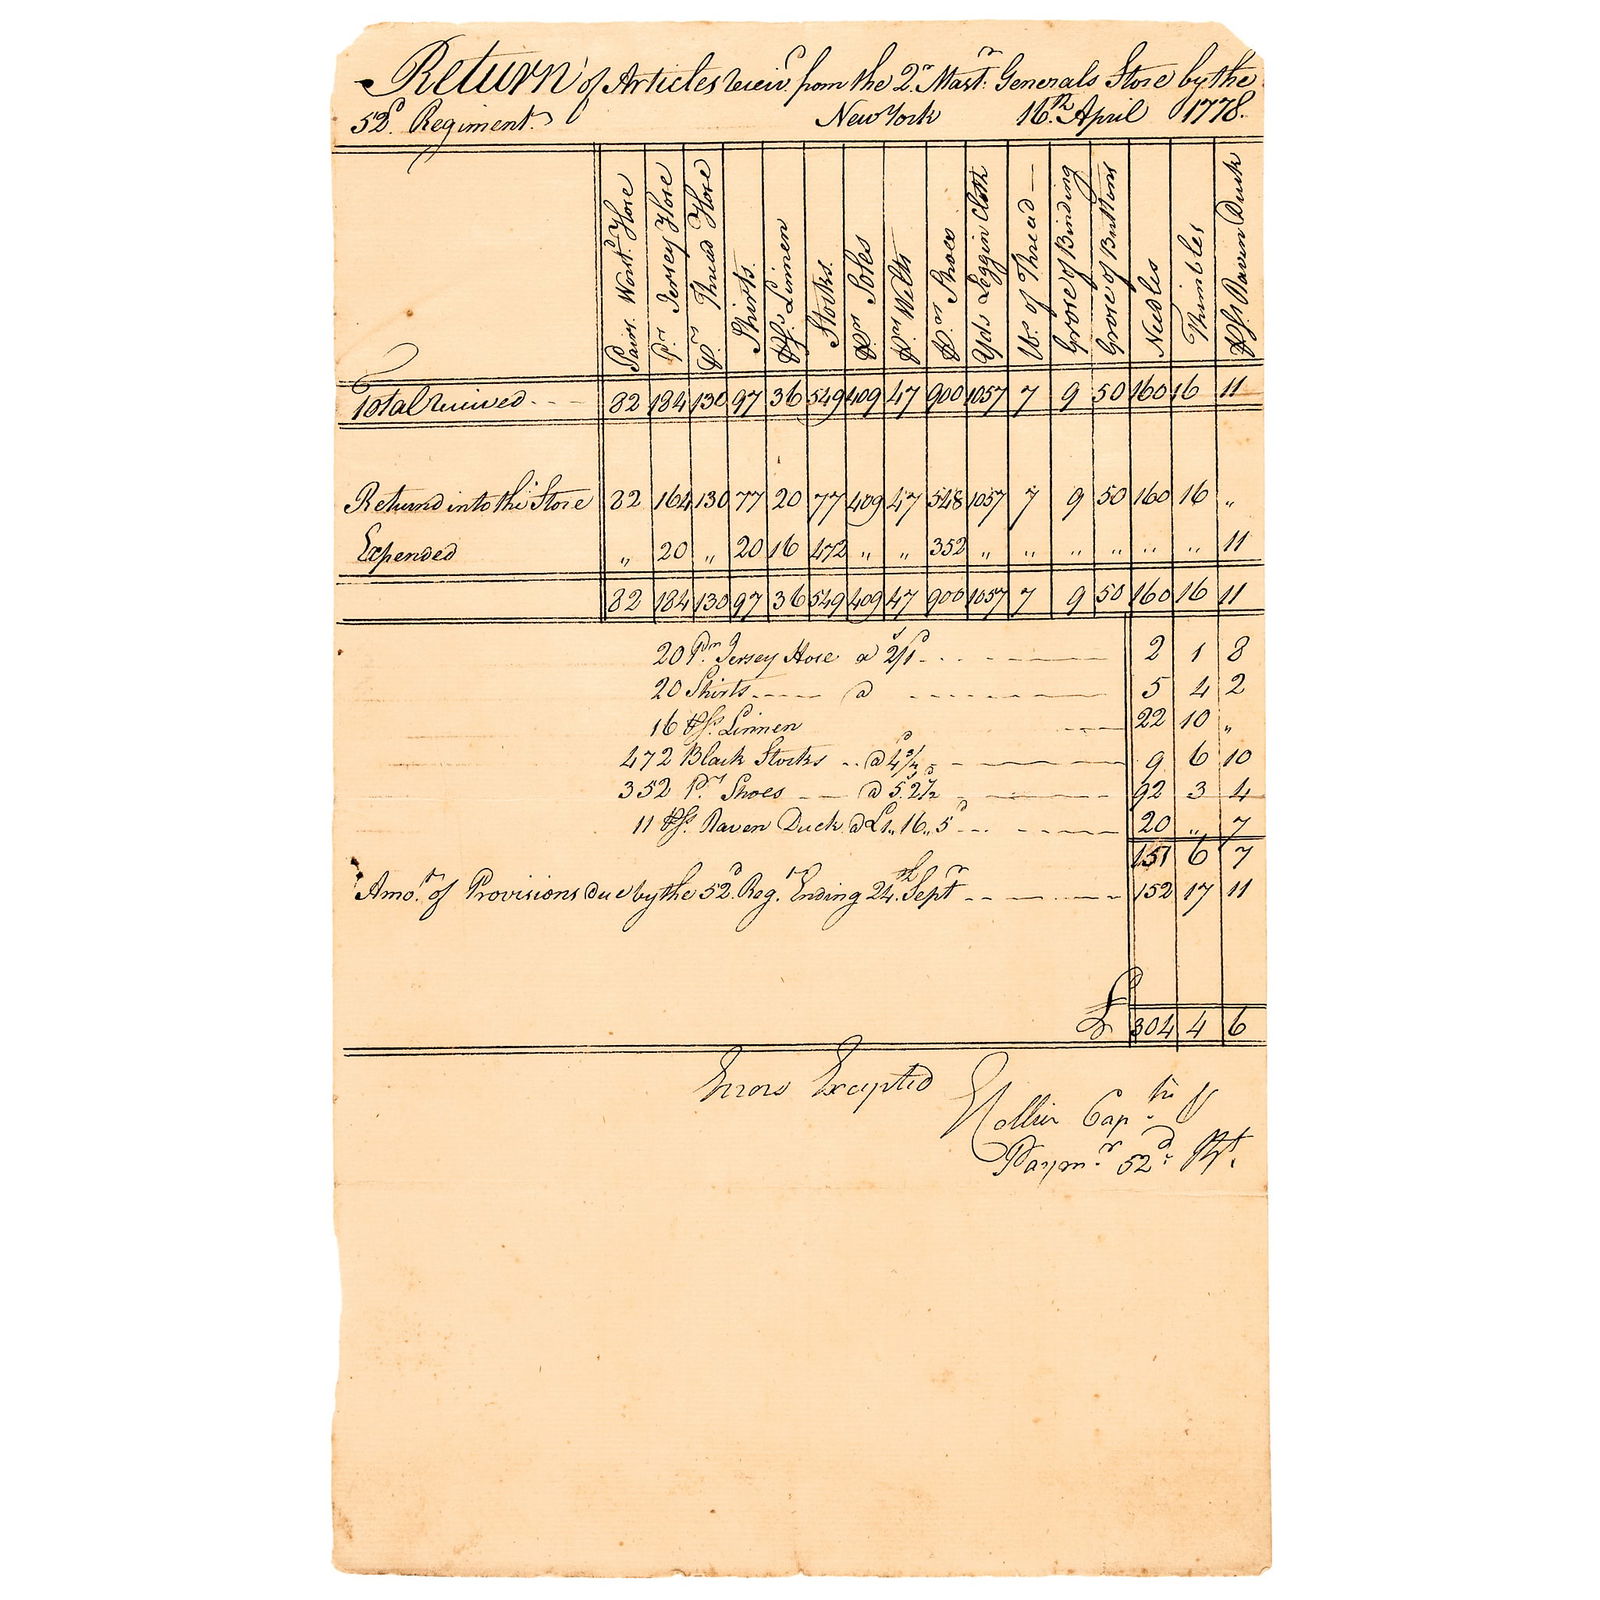 Return of Articles receiv.d from the Qr. Mastr. Generals Store by the
52d. Regiment. New York 16th. April 1778.
Pairs Worst. Hose
Prs. Jersey Hose
Prs. Thread Hose
Shirts.
Ps. Linnen
Stocks.
Prs. Soles
Prs. Welts
Prs. Shoes
Yds. Leggin Cloth
lbs. of Thread
Grose of Binding
Grose of Buttons
Needles
Thimbles
Ps. Raven Duck
Total received --- 82 184 130 97 36 549 409 47 900 1057 7 9 50 160 16 11
Returnd into the Store 82 164 130 77 20 77 409 47 548 1057 7 9 50 160 16 "
Expended " 20 " 20 16 472 " " 352 " " " " " " 11
82 184 130 97 36 549 409 47 900 1057 7 9 50 160 16 11
20 Prs. Jersey Hose a 2s/1d. 2 1 8
20 Shirts a 5 4 2
16 Ps. Linnen 22 10 "
472 Black Stocks @ 4d 3/4 9 6 10
352 Pr. Shoes @ 5s. 2d 1/2 92 3 4
11 Ps. Raven Duck @ £1,, 16,, 5d 20 " 7
151 6 7
Amot. of Provisions due by the 52d. Regt. Ending 24th. Septr 152 17 11
£ 304 4 6
Errors Excepted
Collier Cap tn &
Paymr. 52d. Rt.